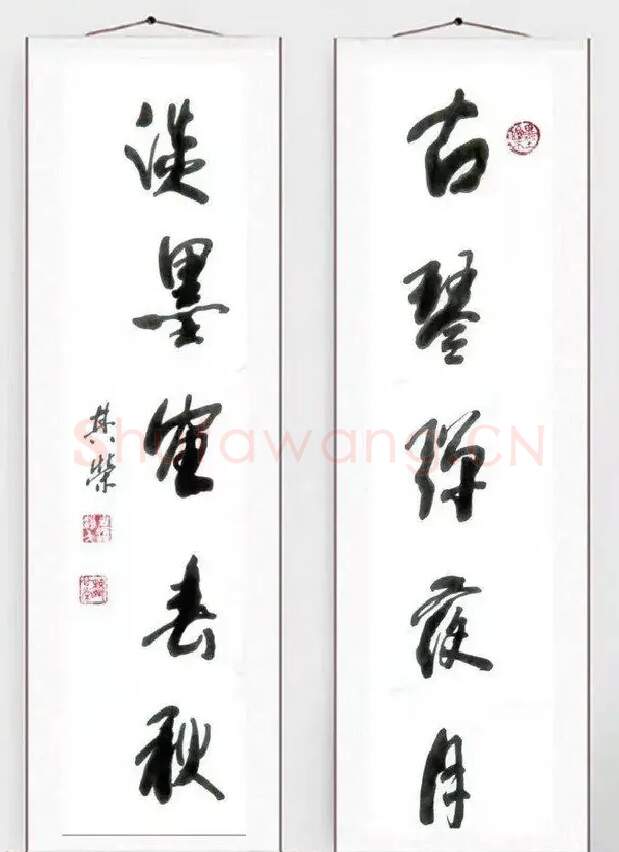 古琴弹夜月
淡墨写春秋
其荣
Shufawang.CN